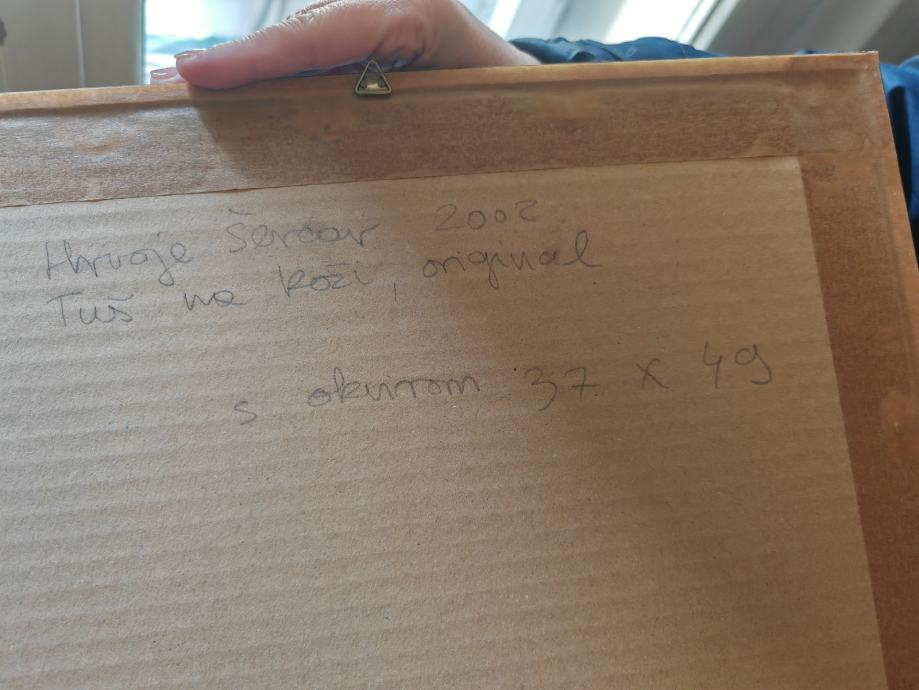 Hrvoje Šercar 2002.
Tuš na koži, original
s okvirom 37 x 49